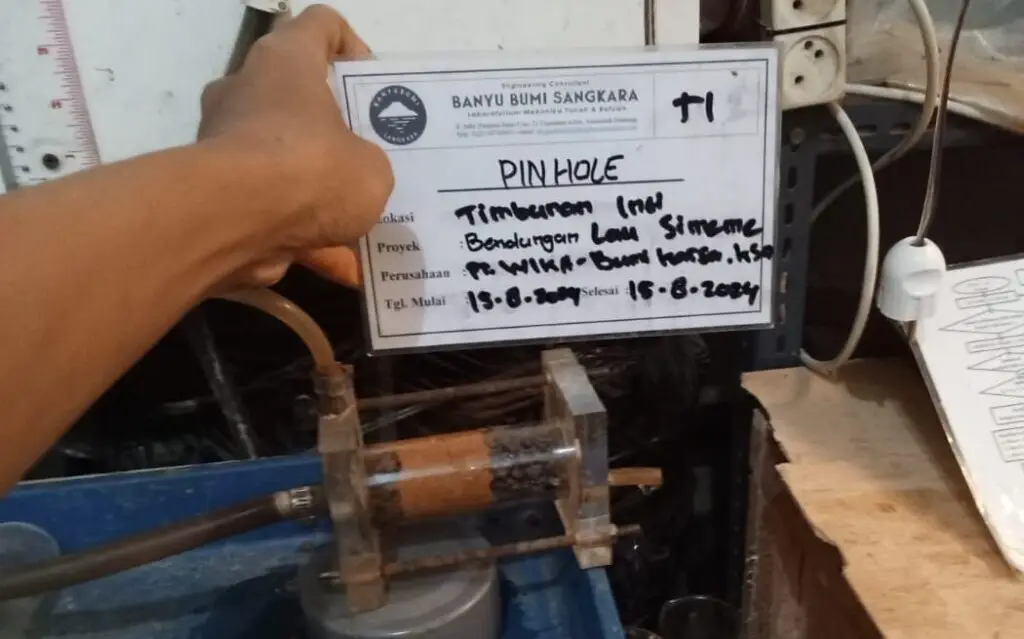 Engineering Consultant
BANYU BUMI SANGKARA
Laboratorium Mekanika Tanah & Batuan
BANYUBUMI
SANGKARA
T1
PIN HOLE
Lokasi Timbunan Inti
Proyek : Bendungan Lau Simeme
Perusahaan : PT. WIKA - Bumi Karsa. KSO
Tgl. Mulai : 15-8-2024 Selesai : 15-8-2024